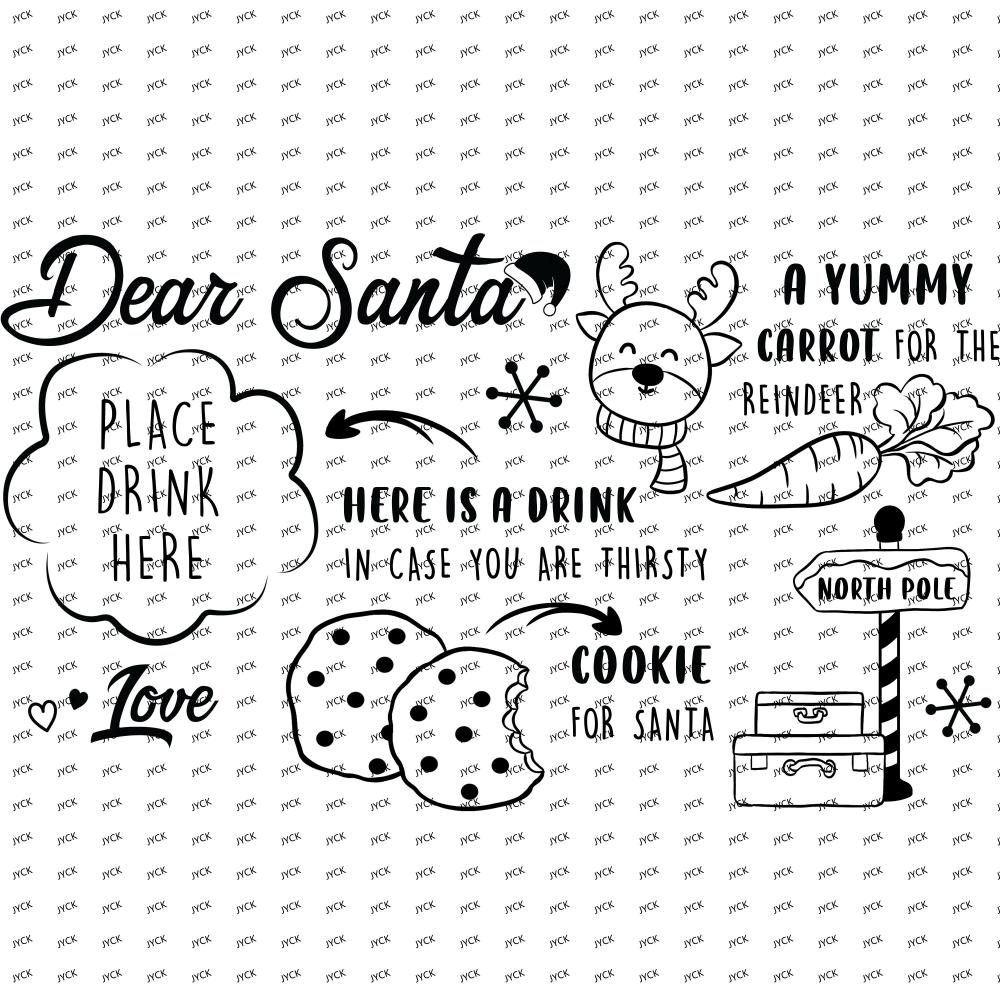 Dear Santa
A YUMMY
CARROT FOR THE
REINDEER
PLACE
DRINK
HERE
HERE IS A DRINK
IN CASE YOU ARE THIRSTY
NORTH POLE
COOKIE
FOR SANTA
Love
JYCK